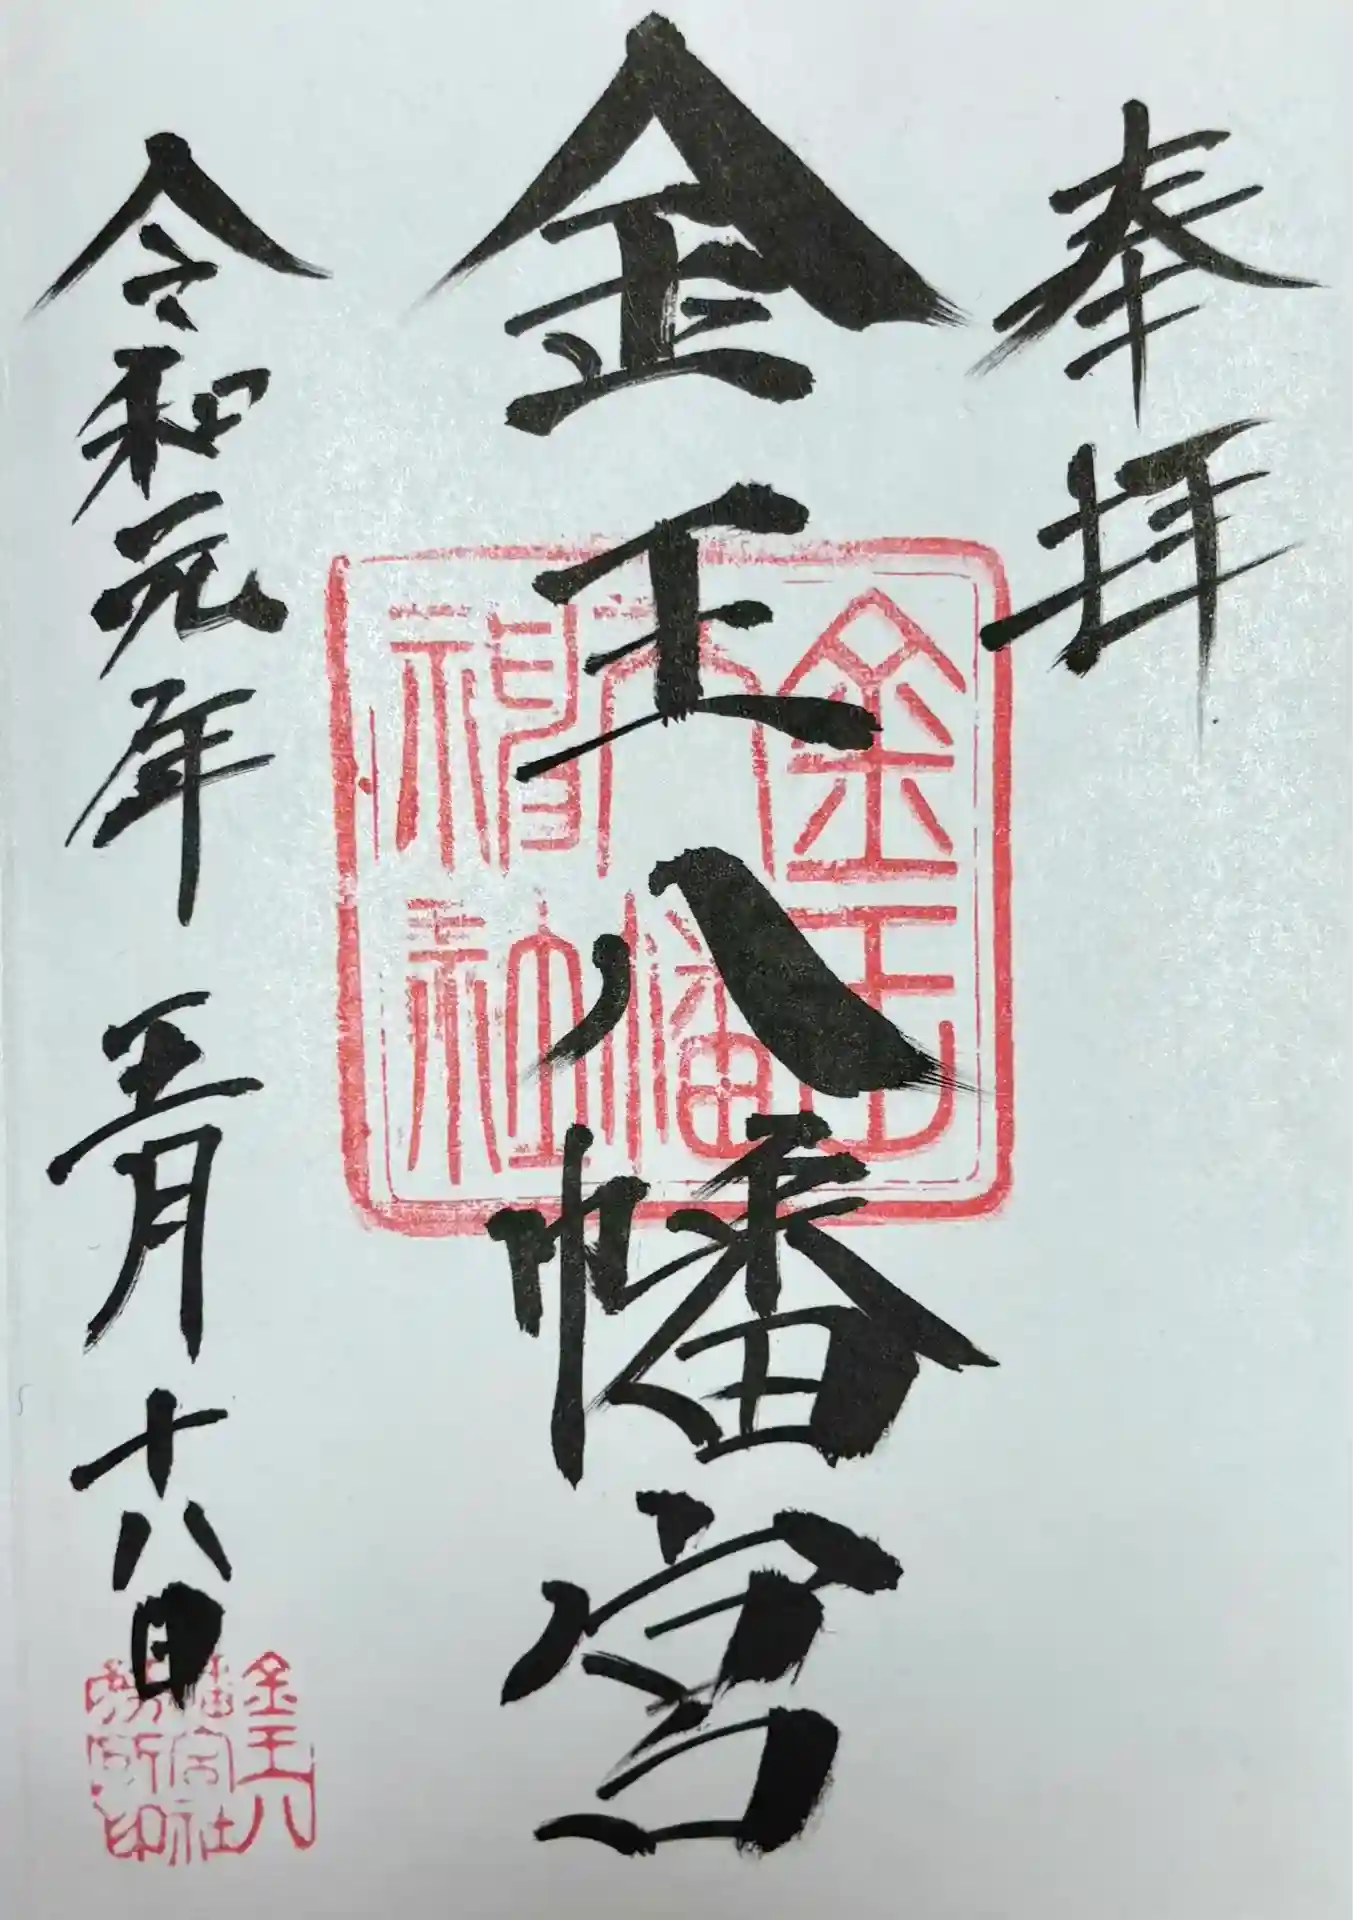 奉拝
金王八幡宮
令和元年 五月十八日
金王
八幡
神社
金王八
幡宮社
務所印